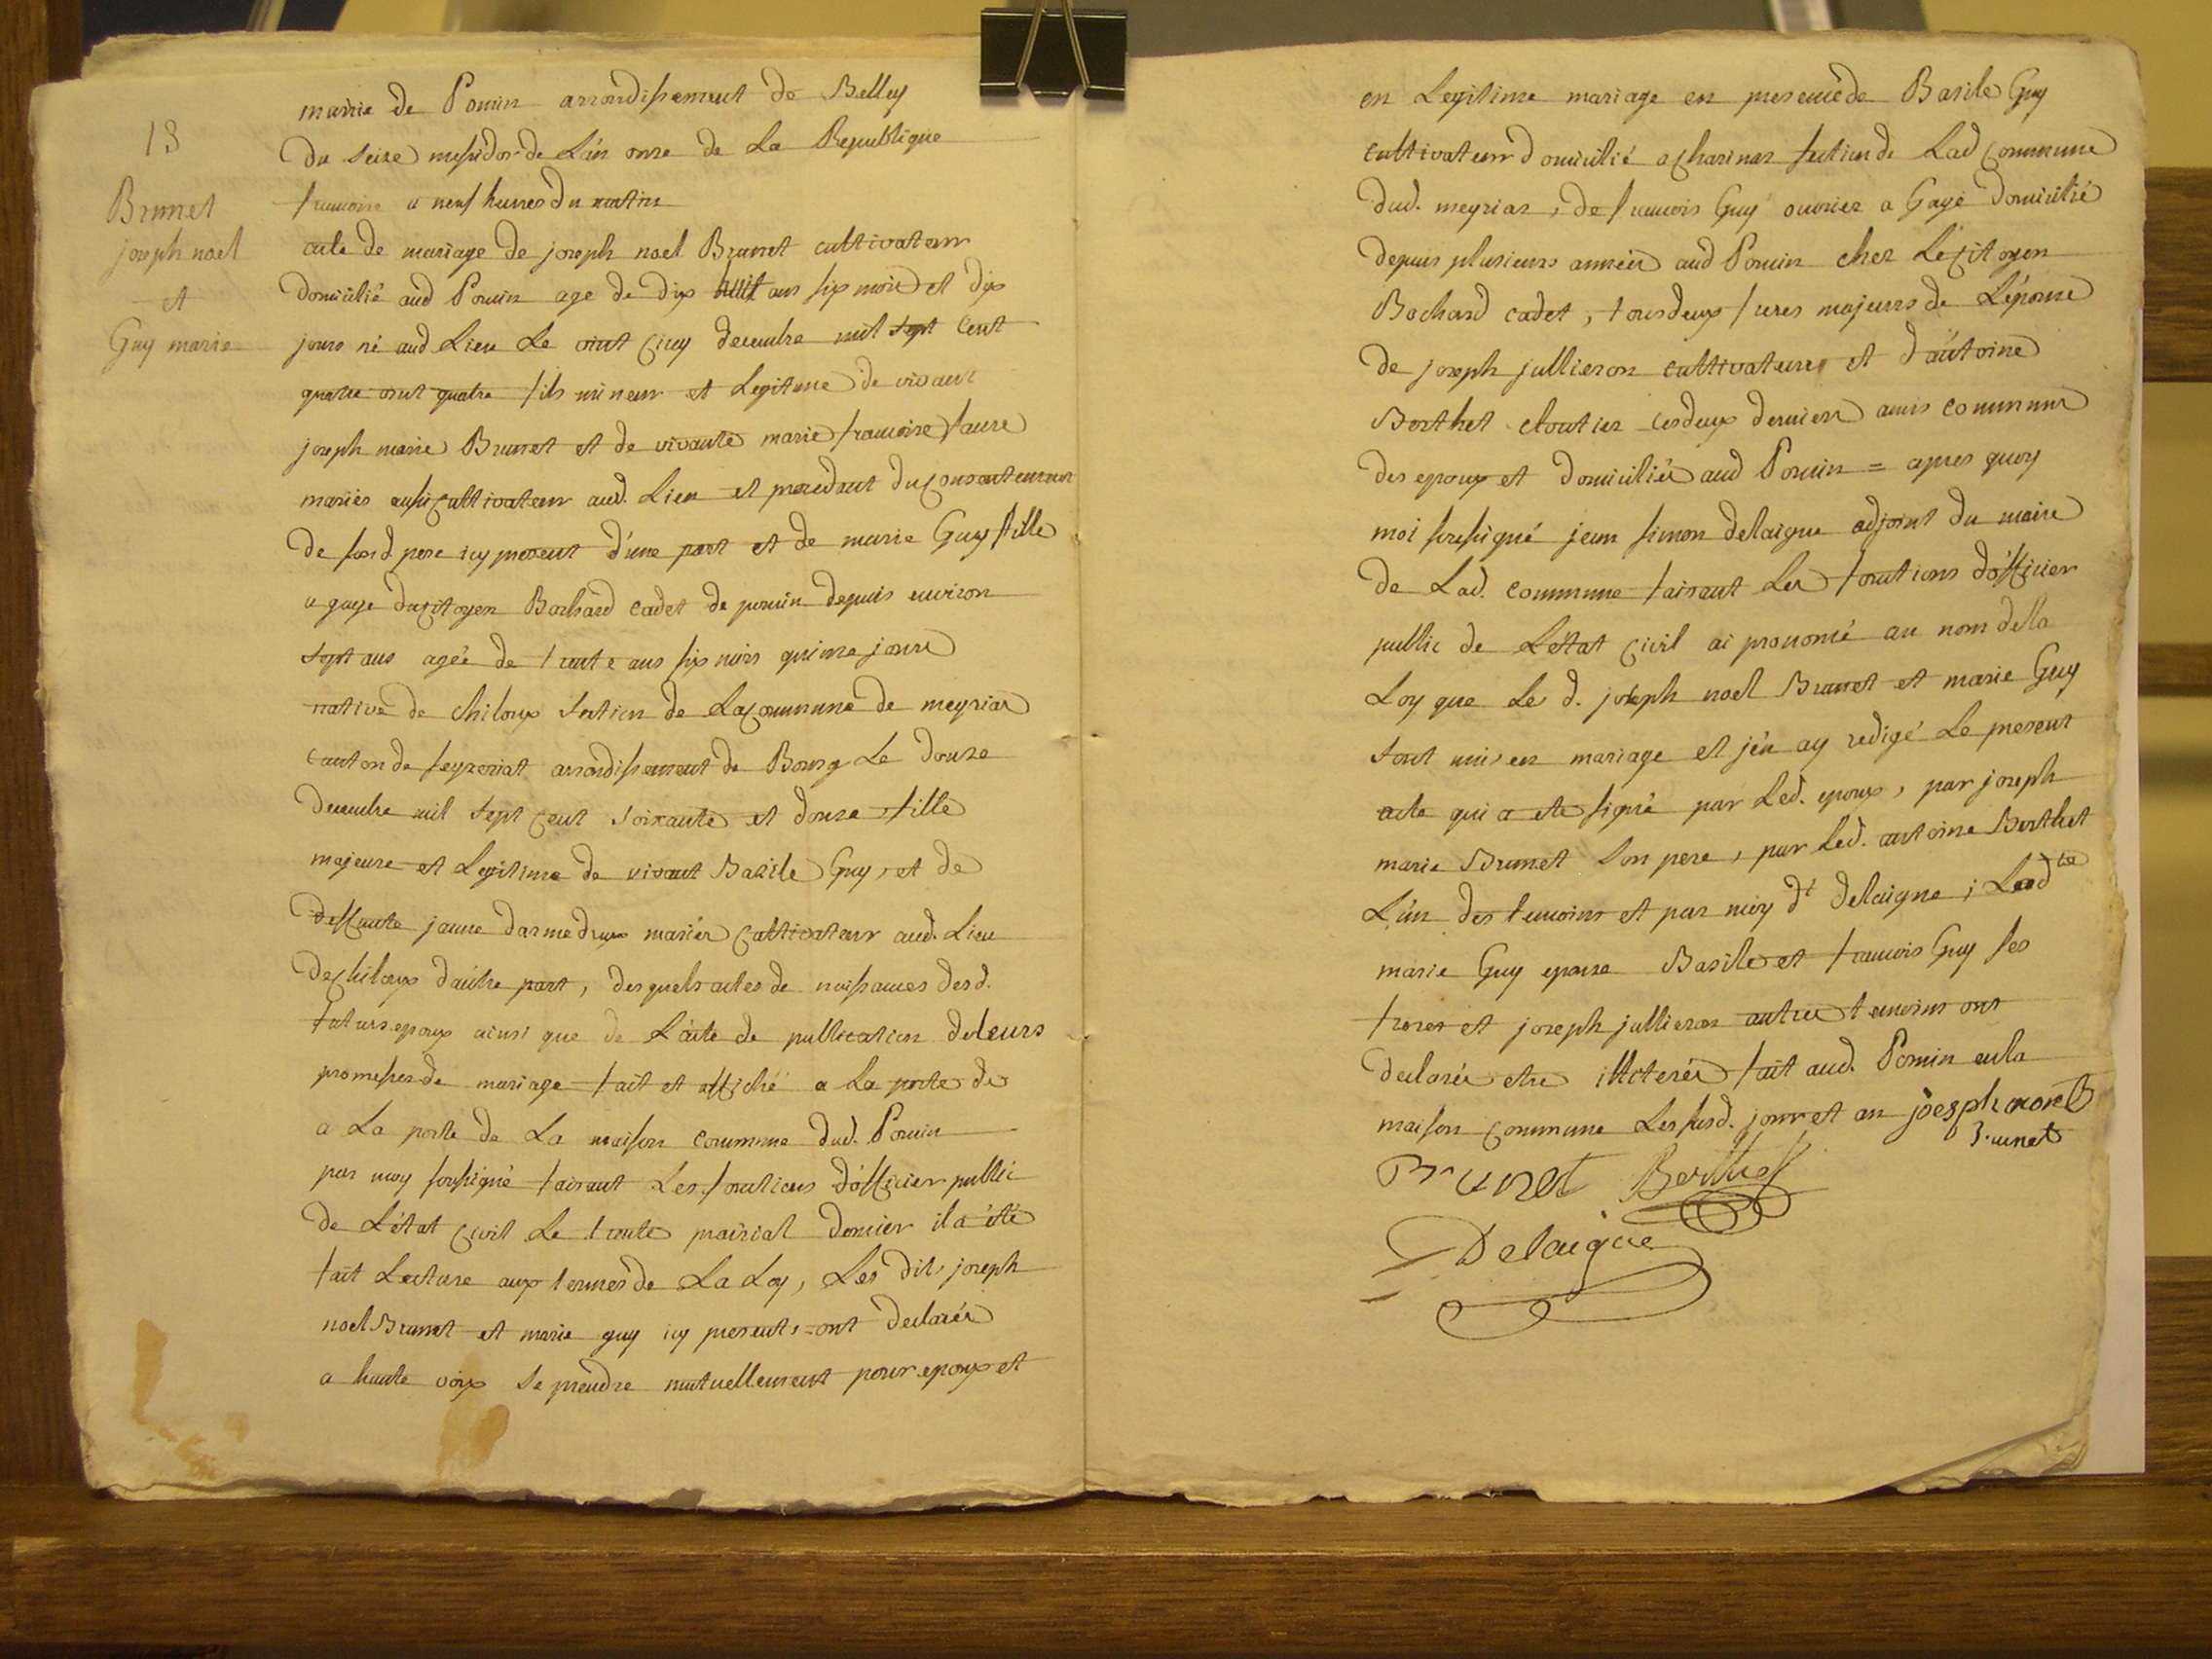 13
Brunet
joseph noel
et
Guy marie
mairie de Poncin arrondissement de Belley
du seize messidor de L'an onze de La Republique
francoise a neuf heures du matin
acte de mariage de joseph noel Brunet cultivateur
domicilié aud Poncin age de dix huit ans six mois et dix
jours né aud Lieu Le vint cinq decembre mil sept cent
quatre vint quatre fils mineur et Legitime de vivant
joseph marie Brunet et de vivante marie francoise faure
mariés aussi cultivateur aud. Lieu et procedant du consentement
de sond. pere icy present d'une part et de marie Guy fille
a gage du citoyen Bochard cadet de poncin depuis environ
sept ans agée de trente ans six mois quinze jours
native de chiloup section de La commune de meyriat
canton de seyzeriat arrondissement de Bourg Le douze
decembre mil sept cent soixante et douze fille
majeure et Legitime de vivant Basile Guy, et de
deffunte janne darmedrux mariés cultivateur aud. Lieu
de chiloup d'autre part, desquels actes de naissances desd.
futurs epoux ainsi que de L'acte de publication de leurs
promesses de mariage fait et affiché a La porte de
a La porte de La maison commune dud. Poncin
par moy soussigné faisant Les fonctions d'officier public
de L'état civil Le trente prairial dernier il a été
fait Lecture aux termes de La Loy, Les dits joseph
noel Brunet et marie guy icy presents ont declarés
a haute voix se prendre mutuellement pour epoux et
en Legitime mariage en presence de Basile Guy
cultivateur domicilié a charinas section de Lad commune
dud. meyriat, de francois Guy ouvrier a Gage domicilié
depuis plusieurs années aud Poncin chez Le citoyen
Bochard cadet, tous deux freres majeurs de L'épouse
de joseph jullieron cultivateur et d'antoine
Berthet cloutier ces deux derniers amis communs
des epoux et domiciliés aud Poncin = apres quoy
moi soussigné jean simon delaigue adjoint du maire
de Lad. commune faisant Les fonctions d'officier
public de L'état civil ai prononcé au nom de la
Loy que Le d. joseph noel Brunet et marie Guy
sont unis en mariage et j'en ay redigé Le present
acte qui a ete signé par Led. epoux, par joseph
marie Brunet son pere, par Led. antoine Berthet
L'un des temoins et par moy dt delaigue ; Lad te
marie Guy epouse Basile et francois Guy ses
freres et joseph jullieron autres temoins ont
declarés etre illeterés fait aud. Poncin en la
maison commune Les susd. jour et an joesph noel
Brunet
Brunet Berthet
Delaigue